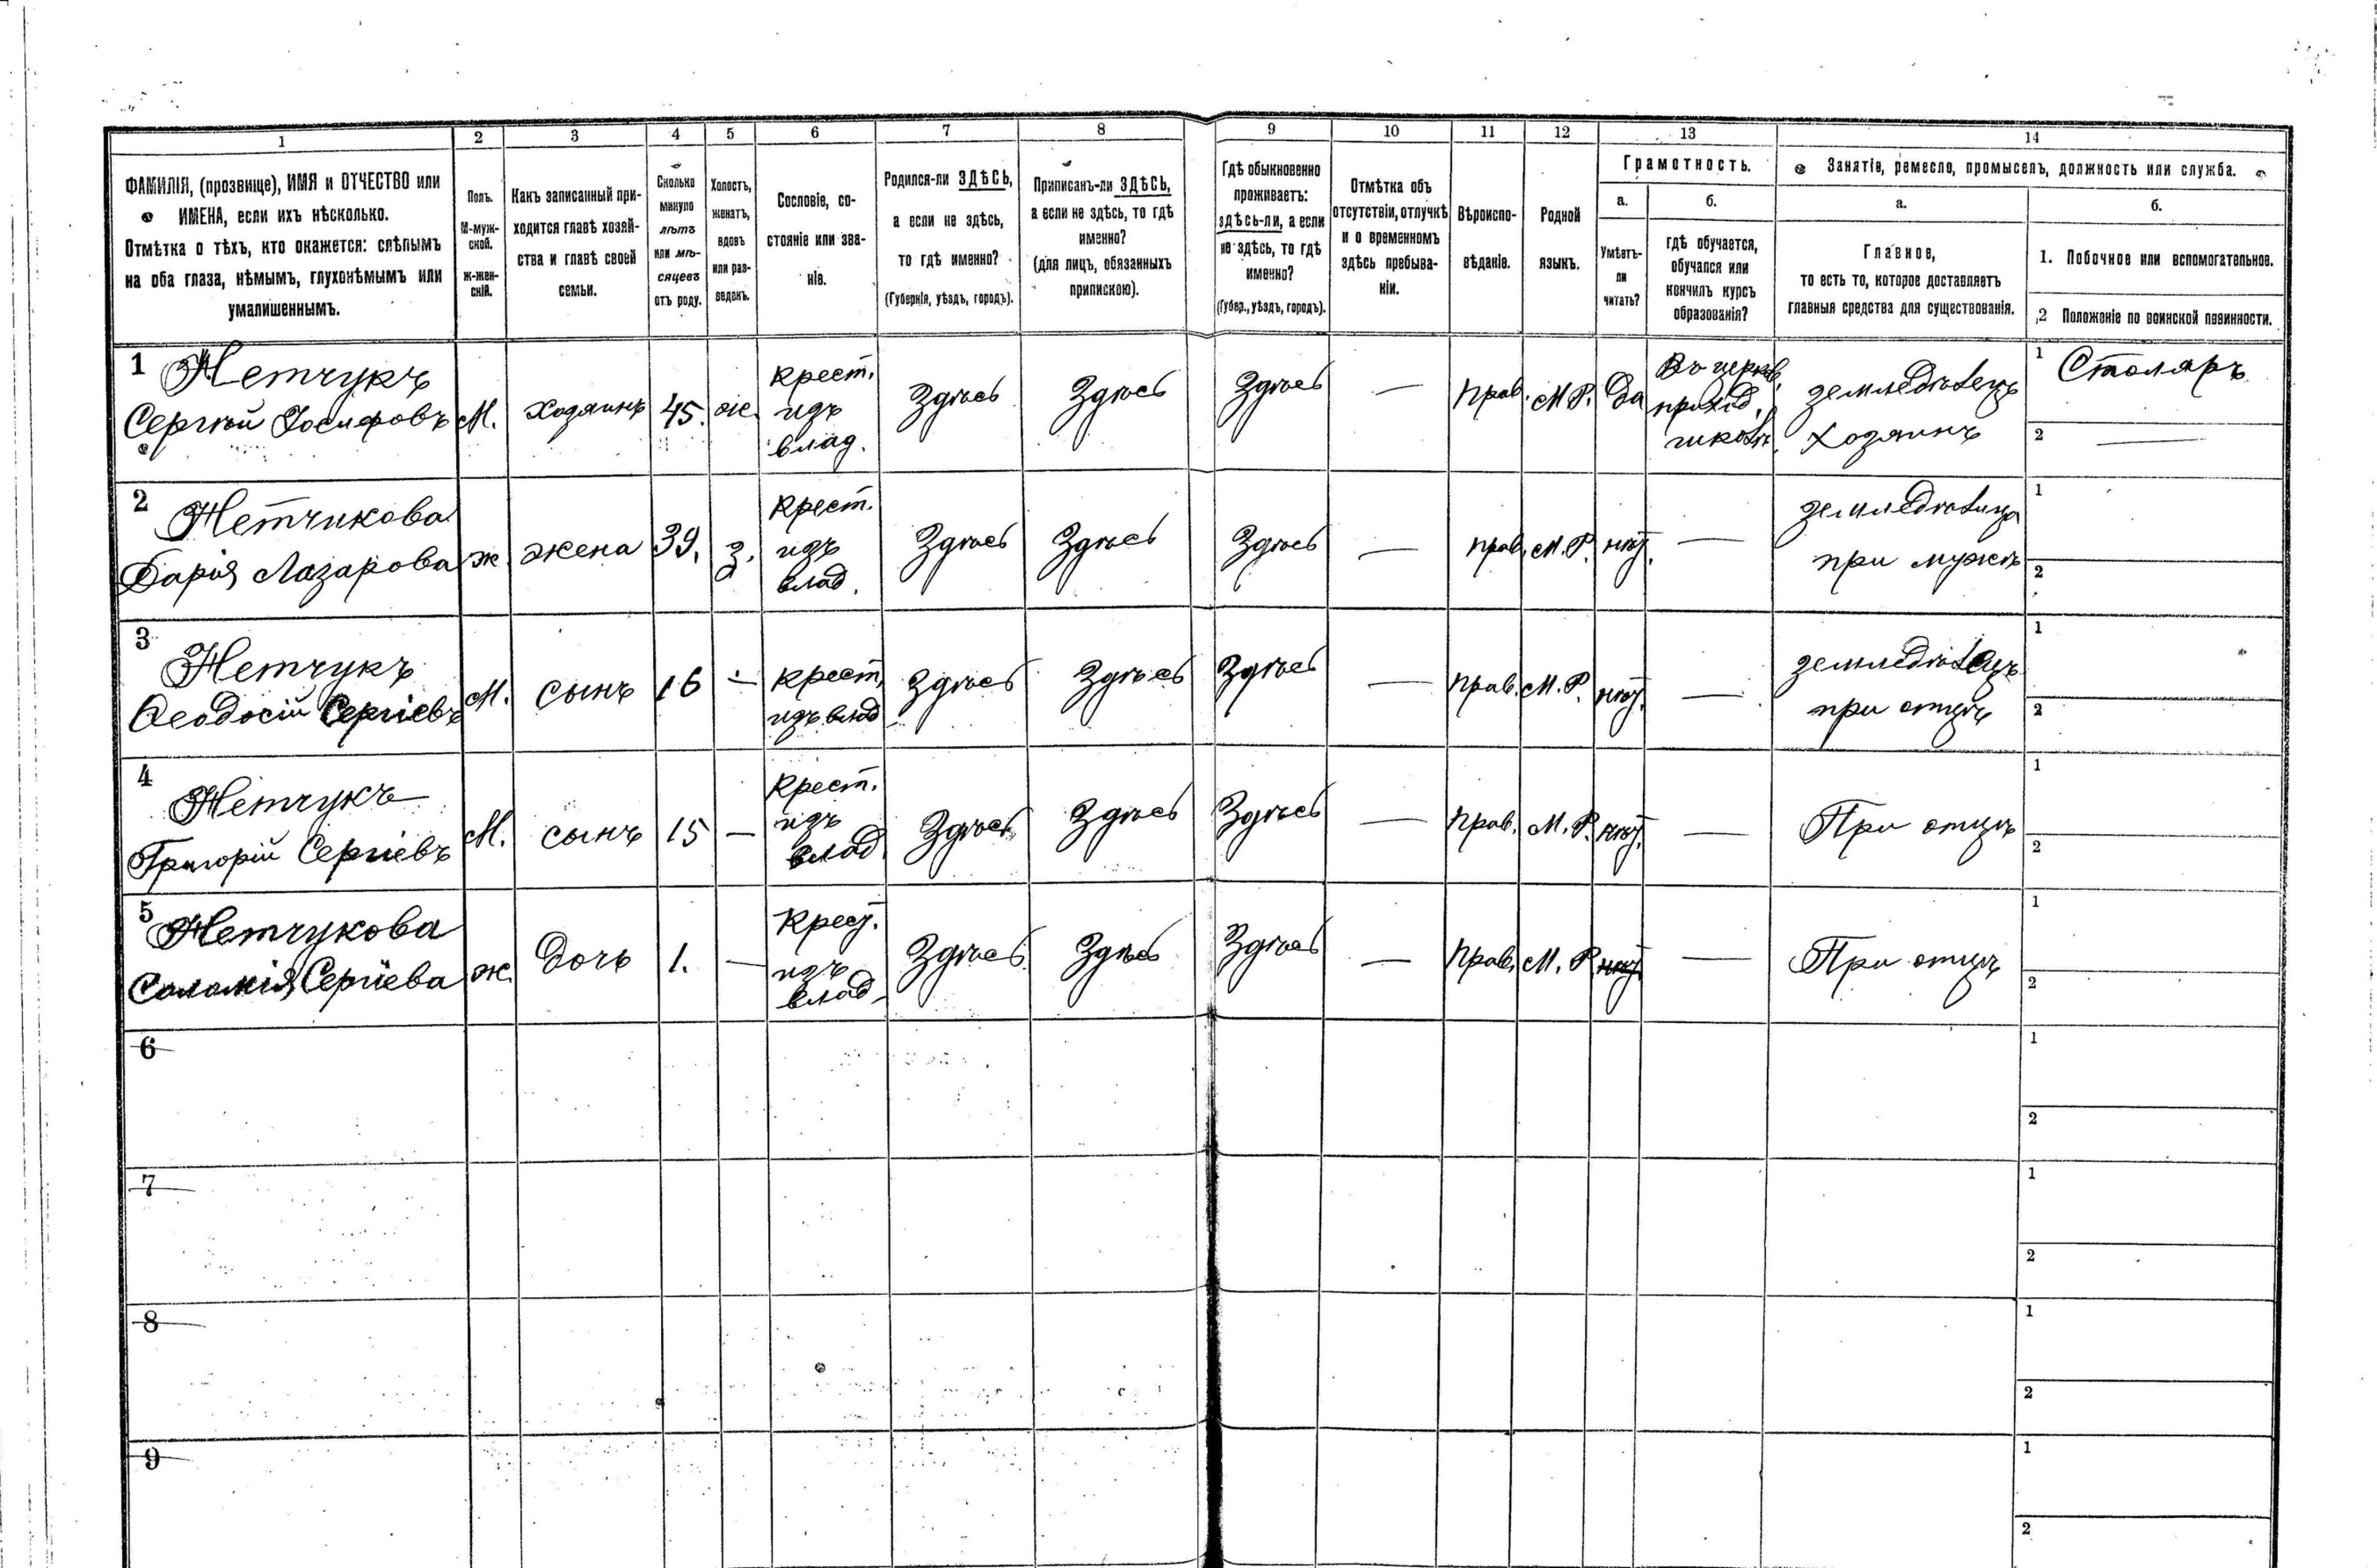 1 2 3 4 5 6 7 8 9 10 11 12 13 14
ФАМИЛІЯ, (прозвище), ИМЯ и ОТЧЕСТВО или
ИМЕНА, если ихъ нѣсколько.
Отмѣтка о тѣхъ, кто окажется: слѣпымъ
на оба глаза, нѣмымъ, глухонѣмымъ или
умалишеннымъ.
Полъ.
М-муж-
ской.
Ж-жен-
скій.
Какъ записанный при-
ходится главѣ хозяй-
ства и главѣ своей
семьи.
Сколько
минуло
лѣтъ
или мѣ-
сяцевъ
отъ роду.
Холостъ,
женатъ,
вдовъ
или раз-
веденъ.
Сословіе, со-
стояніе или зва-
ніе.
Родился-ли ЗДѢСЬ,
а если не здѣсь,
то гдѣ именно?
(Губернія, уѣздъ, городъ).
Приписанъ-ли ЗДѢСЬ,
а если не здѣсь, то гдѣ
именно?
(для лицъ, обязанныхъ
припискою).
Гдѣ обыкновенно
проживаетъ:
здѣсь-ли, а если
не здѣсь, то гдѣ
именно?
(Губер., уѣздъ, городъ).
Отмѣтка объ
отсутствіи, отлучкѣ
и о временномъ
здѣсь пребыва-
ніи.
Вѣроиспо-
вѣданіе.
Родной
языкъ.
Грамотность.
а.
Умѣетъ-
ли
читать?
б.
гдѣ обучается,
обучался или
кончилъ курсъ
образованія?
Занятіе, ремесло, промыселъ, должность или служба.
а.
Главное,
то есть то, которое доставляетъ
главныя средства для существованія.
б.
1. Побочное или вспомогательное.
2 Положеніе по воинской повинности.
1 Нетчукъ
Сергѣй Іосифовъ
М.
хозяинъ
45.
ж.
крест.
изъ
влад.
Здѣсь
Здѣсь
Здѣсь
—
Прав.
М.Р.
Да
Въ церков.
приход.
школѣ
земледѣлецъ
хозяинъ
1 Столяръ
2 —
2 Нетчикова
Дарія Лазарова
ж.
жена
39.
з.
крест.
изъ
влад.
Здѣсь
Здѣсь
Здѣсь
—
прав.
М.Р.
нѣт.
—
земледѣлица
при мужѣ
1
2
3 Нетчукъ
Ѳеодосій Сергіевъ
М.
сынъ
16
—
крест.
изъ влад
Здѣсь
Здѣсь
Здѣсь
—
прав.
М.Р.
нѣт.
—
земледѣлецъ
при отцѣ
1
2
4 Нетчукъ
Григорій Сергіевъ
М.
сынъ
15
—
крест.
изъ
влад.
Здѣсь
Здѣсь
Здѣсь
—
прав.
М.Р.
нѣт.
—
При отцѣ
1
2
5 Нетчукова
Саломія Сергіева
ж.
дочь
1.
—
крест.
изъ
влад.
Здѣсь
Здѣсь
Здѣсь
—
Прав.
М.Р.
нѣт
—
При отцѣ
1
2
6
1
2
7
1
2
8
1
2
9
1
2